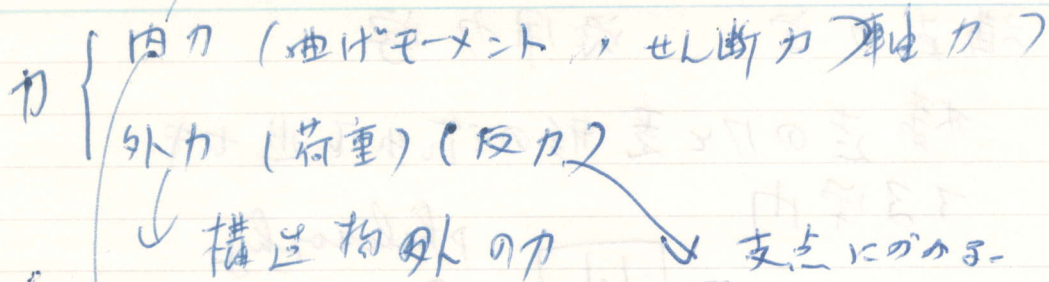 力 { 内力 (曲げモーメント, せん断力, 軸力)
外力 (荷重) (反力)
構造物外の力 支点にかかる